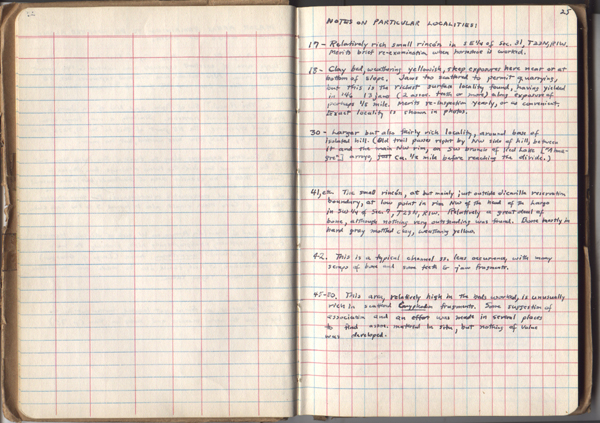 22
25
NOTES ON PARTICULAR LOCALITIES:
17 - Relatively rich small rincón in SE¼ of Sec. 31, T23N, R1W.
Merits brief re-examination when hereafter is worked.
18 - Clay bed, weathering yellowish, steep exposures here near or at
bottom of slope. Jaws too scattered to permit quarrying,
but this is the richest surface locality found, having yielded
in '46 13 jaws (2 assoc. teeth or more) along exposure of
perhaps ½ mile. Merits re-inspection yearly, or as convenient.
Exact locality is shown in photos.
30 - Larger but also fairly rich locality, around base of
isolated hill. (Old trail passes right by NW side of hill, between
it and the main NW rim, on SW branch of
arroyo, just ca. ½ mile before reaching the divide.)
41, etc. The small rincón, at but mainly just outside Jicarilla reservation
boundary, at low point in rim NW of the head of the Largo
in SW¼ of Sec. 9, T27N, R1W. Relatively a great deal of
bone, although nothing very outstanding was found. Bone mostly in
hard gray mottled clay, weathering yellow.
42. This is a typical channel ss. lens occurrence, with many
scraps of bone and some teeth & jaw fragments.
45-50. This area, relatively high in the beds worked, is unusually
rich in scattered Coryphodon fragments. Some suggestion of
association and an effort was made in several places
to find assoc. material in situ, but nothing of value
was developed.